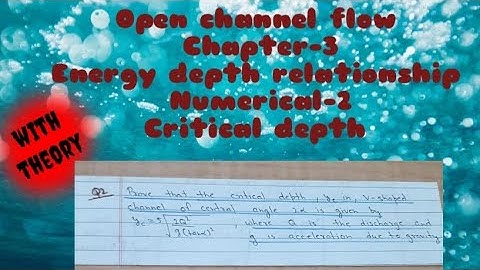 Open channel flow
Chapter-3
Energy depth relationship
Numerical-2
Critical depth
WITH
THEORY
Q2 Prove that the critical depth, yc in, V-shaped
channel of central angle 2α is given by
yc = 5√(2Q²/g(tanα)²), where Q is the discharge and
g is acceleration due to gravity